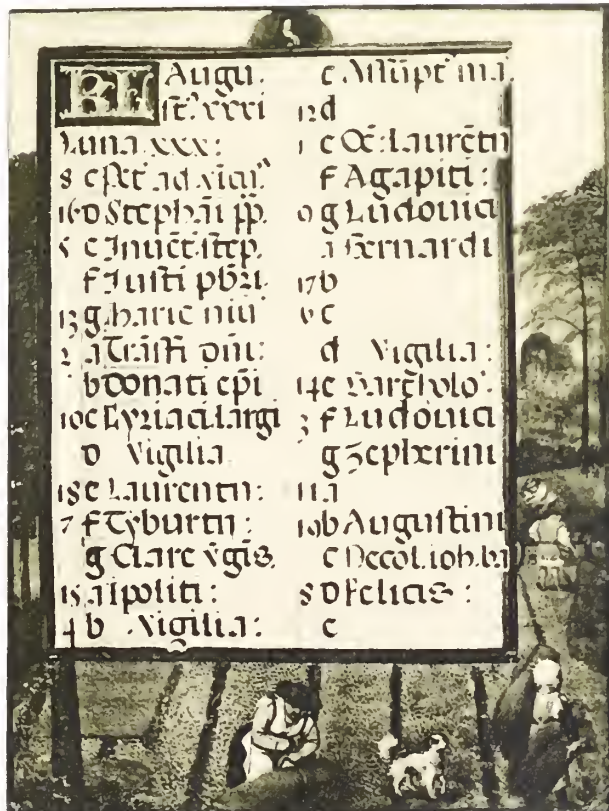 KL Augu.
st᾽ xxxi
Luna xxx:
8 c ad vicu᾽
16 D Stephāi pp̄.
5 e Inuēt. step.
f Iusti pb̄ri.
13 g Marie niu
2 a Trāsfi dn̄i:
b Donati ep̄i
10 c Cyriaci largi
D Vigilia
18 e Laurentii:
7 f Tyburtii:
g Clare v̄gis.
15 a Ipoliti:
4 b Vigilia:
c Assūpt᾽ ma.
12 d
1 e Oc̄: Laurētii
f Agapiti:
9 g Ludouici
a Bernardi
17 b
6 c
d Vigilia:
14 e Bartholo᾽.
3 f Ludouici
g Zepherini
11 a
19 b Augustini
c Decol. ioh. ba
8 D Felicis:
e